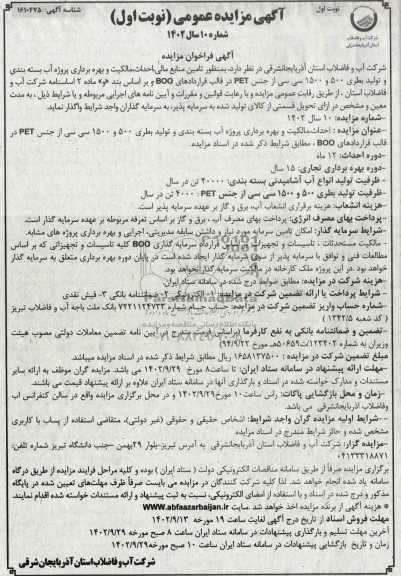 نوبت اول
آگهی مزایده عمومی (نوبت اول)
شناسه آگهی: ۱۶۱۰۴۷۵
شماره ۱۰ سال ۱۴۰۲
شرکت آب و فاضلاب استان آذربایجانشرقی
آگهی فراخوان مزایده
شرکت آب و فاضلاب استان آذربایجانشرقی در نظر دارد، بمنظور تامین منابع مالی،احداث،مالکیت و بهره برداری پروژه آب بسته بندی
و تولید بطری ۵۰۰ و ۱۵۰۰ سی سی از جنس PET در قالب قراردادهای BOO و بر اساس بند «و» ماده ۲ اساسنامه شرکت آب و
فاضلاب استان ، از طریق رقابت عمومی مزایده و با رعایت قوانین و مقررات و آیین نامه های اجرایی مربوطه و با شرایط ذیل ، به مدت
معین و مشخص در ازای تحویل قسمتی از کالای تولید شده به سرمایه پذیر، به سرمایه گذاران واجد شرایط واگذار نماید.
-شماره مزایده: ۱۰ سال ۱۴۰۲
-عنوان مزایده : احداث،مالکیت و بهره برداری پروژه آب بسته بندی و تولید بطری ۵۰۰ و ۱۵۰۰ سی سی از جنس PET در
قالب قراردادهای BOO ، مطابق شرایط ذکر شده در اسناد مزایده.
-دوره احداث: ۱۲ ماه
-دوره بهره برداری تجاری: ۱۵ سال
- ظرفیت تولید انواع آب آشامیدنی بسته بندی: ۴۰۰۰۰ تن در سال
- ظرفیت تولید بطری ۵۰۰ و ۱۵۰۰ سی سی از جنس PET : ۴۰۰۰ تن در سال
-هزینه انشعاب: هزینه برقراری انشعاب آب، برق و گاز بر عهده سرمایه پذیر است.
-پرداخت بهای مصرف انرژی: پرداخت بهای مصرف آب ، برق و گاز بر اساس تعرفه مربوطه بر عهده سرمایه گذار است.
-شرایط سرمایه گذار: امکان تامین سرمایه مورد نیاز و داشتن سابقه مدیریتی، اجرایی و بهره برداری پروژه های مشابه.
- مالکیت مستحدثات ، تاسیسات و تجهیزات قرارداد سرمایه گذاری BOO کلیه تاسیسات و تجهیزاتی که بر اساس
مطالعات فنی و توافق با سرمایه پذیر از سوی سرمایه گذار ایجاد شده است در پایان دوره بهره برداری متعلق به سرمایه گذار
خواهد بود. در این پروژه ملک کارخانه در مالکیت سرمایه گذار نخواهد بود.
-هزینه شرکت در مزایده: مطابق ضوابط درج شده در سامانه ستاد ایران.
شرایط پرداخت یا ارائه تضمین شرکت در مزایده: ۲- ضمانتنامه بانکی ۳- فیش نقدی
-شماره حساب واریز تضمین شرکت در مزایده: حساب جسام شماره ۷۲۲۱۱۲۴۷۳۳ بانک ملت باجه آب و فاضلاب تبریز
( کد شعبه ۱۳۴۲/۵ )
-تضمین و ضمانتنامه بانکی به نفع کارفرما (براساس فرمت مندرج در آیین نامه تضمین معاملات دولتی مصوب هیئت
وزیران به شماره ۱۲۳۴۰۲/ت۵۰۶۵۹هـ مورخ ۹۴/۹/۲۲
مبلغ تضمین شرکت در مزایده : ۱۶۵۸۱۳۷۵۰۰ ریال مطابق شرایط ذکر شده در اسناد مزایده میباشد.
-مهلت ارائه پیشنهاد در سامانه ستاد ایران: تا ساعت ۸ مورخ ۱۴۰۲/۹/۲۹ می باشد. مزایده گران موظف به ارائه سایر
مستندات و مدارک خواسته شده در اسناد و بارگذاری آنها در سامانه ستاد ایران علاوه بر ارائه پیشنهاد قیمت می باشند.
-زمان و محل بازگشایی پاکات: راس ساعت ۱۰ مورخ ۱۴۰۲/۹/۲۹ و در محل برگزاری مزایده واقع در سالن کنفرانس آب
وفاضلاب آذربایجانشرقی می باشد.
--شرایط اولیه مزایده گران واجد شرایط: اشخاص حقیقی و حقوقی (غیر دولتی)، متقاضی استفاده از پساب با کاربری
مشخص شده و حائز شرایط مندرج در اسناد مزایده
-مزایده گزار: شرکت آب و فاضلاب استان آذربایجانشرقی به آدرس تبریز-بلوار ۲۹بهمن -جنب دانشگاه تبریز شماره تلفن:
۰۴۱۳۳۳۱۸۸۷۱
برگزاری مزایده صرفاً از طریق سامانه مناقصات الکترونیکی دولت ( ستاد ایران ) بوده و کلیه مراحل فرایند مزایده از طریق درگاه
سامانه یاد شده انجام خواهد شد. لذا کلیه شرکت کنندگان در مزایده می بایست صرفاً ظرف مهلت‌های تعیین شده در پایگاه
مذکور و درج شده در اسناد و با استفاده از امضای الکترونیکی، نسبت به ثبت پیشنهاد و ارائه مستندات خواسته شده اقدام نمایند.
* هزینه آگهی از برنده مزایده اخذ خواهد شد .سایت WWW.abfaazarbaijan.ir
مهلت فروش اسناد از تاریخ درج آگهی لغایت ساعت ۱۹ مورخه ۱۴۰۲/۹/۱۳
آخرین مهلت تسلیم و بارگذاری پیشنهادات در سامانه ستاد ایران ساعت ۸ صبح مورخه ۱۴۰۲/۹/۲۹
زمان و تاریخ بازگشایی پیشنهادات در سامانه ستاد ایران ساعت ۱۰ صبح مورخه ۱۴۰۲/۹/۲۹
شرکت آب و فاضلاب استان آذربایجان شرقی